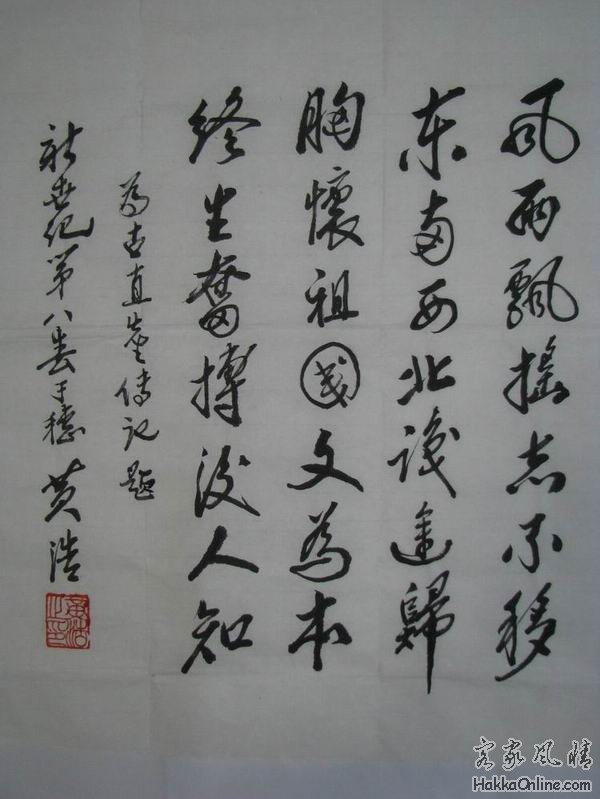 风雨飘摇志不移
东南西北識途歸
胸懷祖國文為本
终生奮搏後人知
為古直先生传记题
新世纪第八春于穗 黄浩
客家風情
HakkaOnline.com